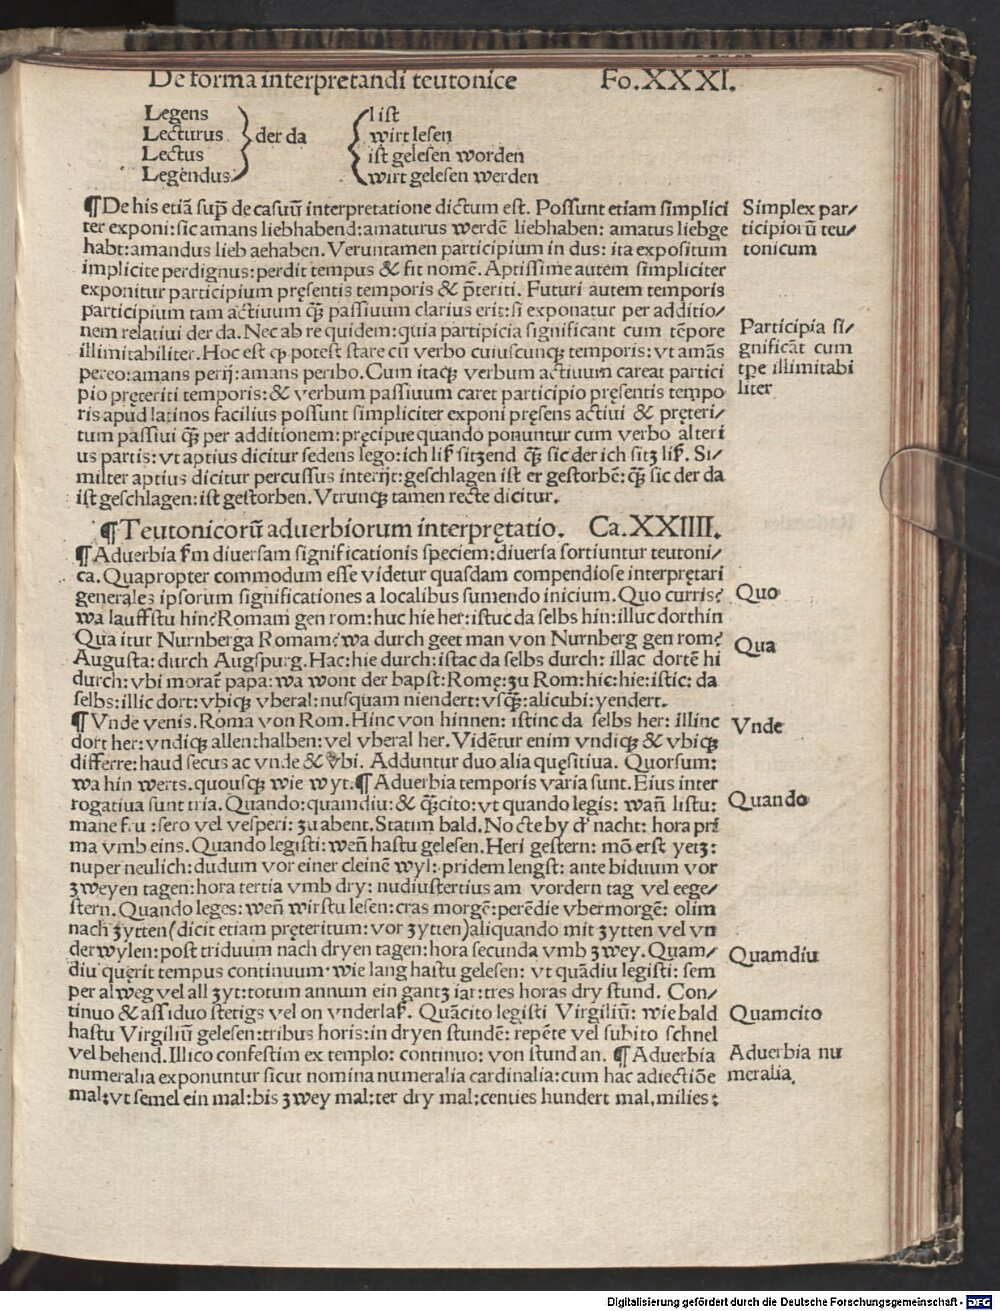 De forma interpretandi teutonice Fo.XXXI.
Legens
Lecturus
Lectus
Legendus
der da
list
wirt lesen
ist gelesen worden
wirt gelesen werden
¶De his etiã sup̃ de casuũ interpretatione dictum est. Possunt etiam simplici
ter exponi:sic amans liebhabend:amaturus werdẽ liebhaben: amatus liebge
habt:amandus lieb aehaben. Veruntamen participium in dus: ita expositum
implicite perdignus:perdit tempus & fit nomẽ. Aptissime autem simpliciter
exponitur participium pręsentis temporis & p̃teriti. Futuri autem temporis
participium tam actiuum q̃ȝ passiuum clarius erit:si exponatur per additio/
nem relatiui der da. Nec ab re quidem:quia partipicia significant cum tẽpore
illimitabiliter. Hoc est ꝙ potest stare cũ verbo cuiuscunqȝ temporis: vt amãs
pereo:amans perij:amans peribo. Cum itaqȝ verbum actiuum careat partici
pio pręteriti temporis:& verbum passiuum caret participio pręsentis tempo
ris apud latinos facilius possunt simpliciter exponi pręsens actiui & pręteri/
tum passiui q̃ȝ per additionem: pręcipue quando ponuntur cum verbo alteri
us partis: vt aptius dicitur sedens lego:ich liß sitzend q̃ȝ sic der ich sitz liß. Si/
militer aptius dicitur percussus interijt:geschlagen ist er gestorbẽ: q̃ȝ sic der da
ist geschlagen:ist gestorben. Vtrunqȝ tamen recte dicitur.
Simplex par/
ticipiorũ teu/
tonicum
Participia si/
gnificãt cum
tp̃e illimitabi
liter
¶Teutonicorũ aduerbiorum interpretatio. Ca.XXIIII.
¶Aduerbia ẜm diuersam significationis speciem:diuersa sortiuntur teutoni/
ca. Quapropter commodum esse videtur quasdam compendiose interpretari
generales ipsorum significationes a localibus sumendo inicium. Quo curris?
wa lauffstu hin? Romam gen rom: huc hie her: istuc da selbs hin:illuc dorthin
Qua itur Nurnberga Romam? wa durch geet man von Nurnberg gen rom?
Augusta: durch Augspurg. Hac:hie durch:istac da selbs durch: illac dortẽ hi
durch: vbi morat̃ papa: wa wont der bapst: Romę:zu Rom:hic:hie:istic: da
selbs:illic dort: vbiqȝ vberal:nusquam niendert: vsq̃ȝ:alicubi:yendert.
¶Vnde venis. Roma von Rom. Hinc von hinnen: istinc da selbs her: illinc
dort her: vndiqȝ allenthalben: vel vberal her. Vidẽtur enim vndiqȝ & vbiqȝ
differre:haud secus ac vnde & Vbi. Adduntur duo alia quęsitiua. Quorsum:
wa hin werts. quousqȝ wie wyt.¶Aduerbia temporis varia sunt. Eius inter
rogatiua sunt tria. Quando:quamdiu:& q̃ȝcito: vt quando legis: wañ listu:
mane fru:sero vel vesperi: zu abent. Statim bald. Nocte by d' nacht: hora pri
ma vmb eins. Quando legisti: weñ hastu gelesen. Heri gestern: mõ erst yetz:
nuper neulich:dudum vor einer cleinẽ wyl: pridem lengst: ante biduum vor
zweyen tagen: hora tertia vmb dry: nudiustertius am vordern tag vel eege/
stern. Quando leges: weñ wirstu lesen: cras morgẽ:perẽdie vbermorgẽ: olim
nach zytten(dicit etiam pręteritum: vor zytten)aliquando mit zytten vel vn
der wylen: post triduum nach dryen tagen:hora secunda vmb zwey. Quam/
diu quęrit tempus continuum· wie lang hastu gelesen: vt quãdiu legisti: sem
per alweg vel all zyt:totum annum ein gantz iar:tres horas dry stund. Con/
tinuo & assiduo stetigs vel on vnderlaß. Quãcito legisti Virgiliũ: wie bald
hastu Virgiliũ gelesen:tribus horis:in dryen stundẽ: repẽte vel subito schnel
vel behend. Illico confestim ex templo: continuo: von stund an. ¶Aduerbia
numeralia exponuntur sicut nomina numeralia cardinalia:cum hac adiectiõe
mal:vt semel ein mal:bis zwey mal:ter dry mal:centies hundert mal,milies:
Quo
Qua
Vnde
Quando
Quamdiu
Quamcito
Aduerbia nu
meralia,
Digitalisierung gefördert durch die Deutsche Forschungsgemeinschaft - DFG